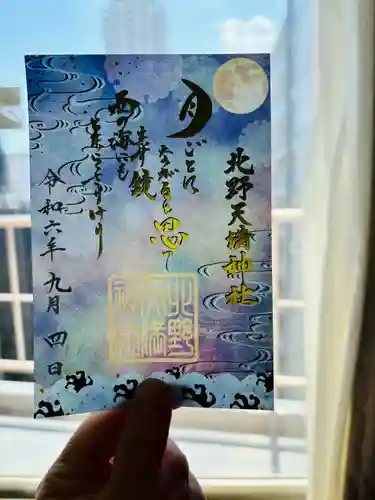 北野天満神社
月ごとに
ながると思ひし
ます鏡
西の海にも
とまらざりけり
令和六年九月四日
北野
天満
神社